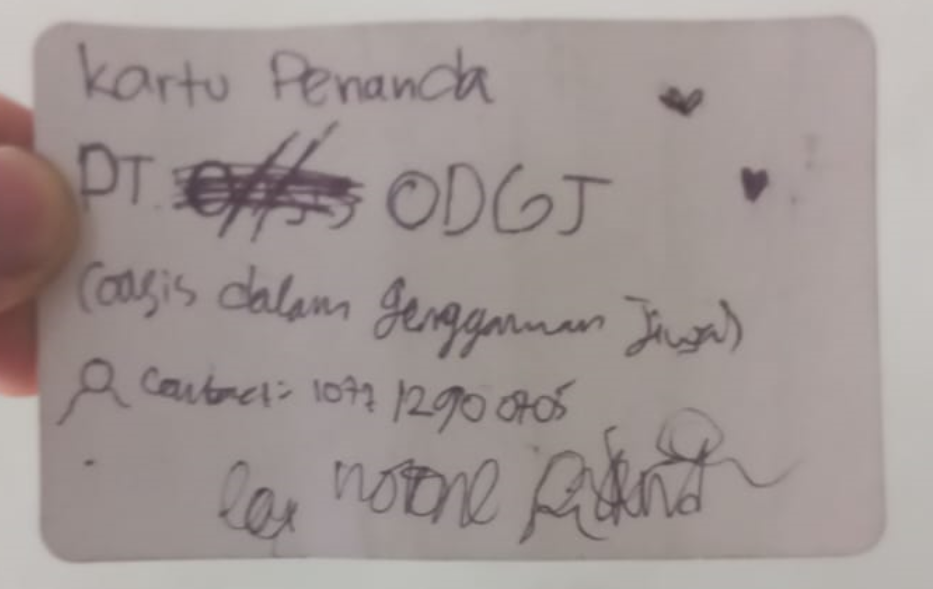 Kartu Penanda
DT. ODGJ
(oasis dalam genggaman jiwa)
Contact: 1077 1290 0705